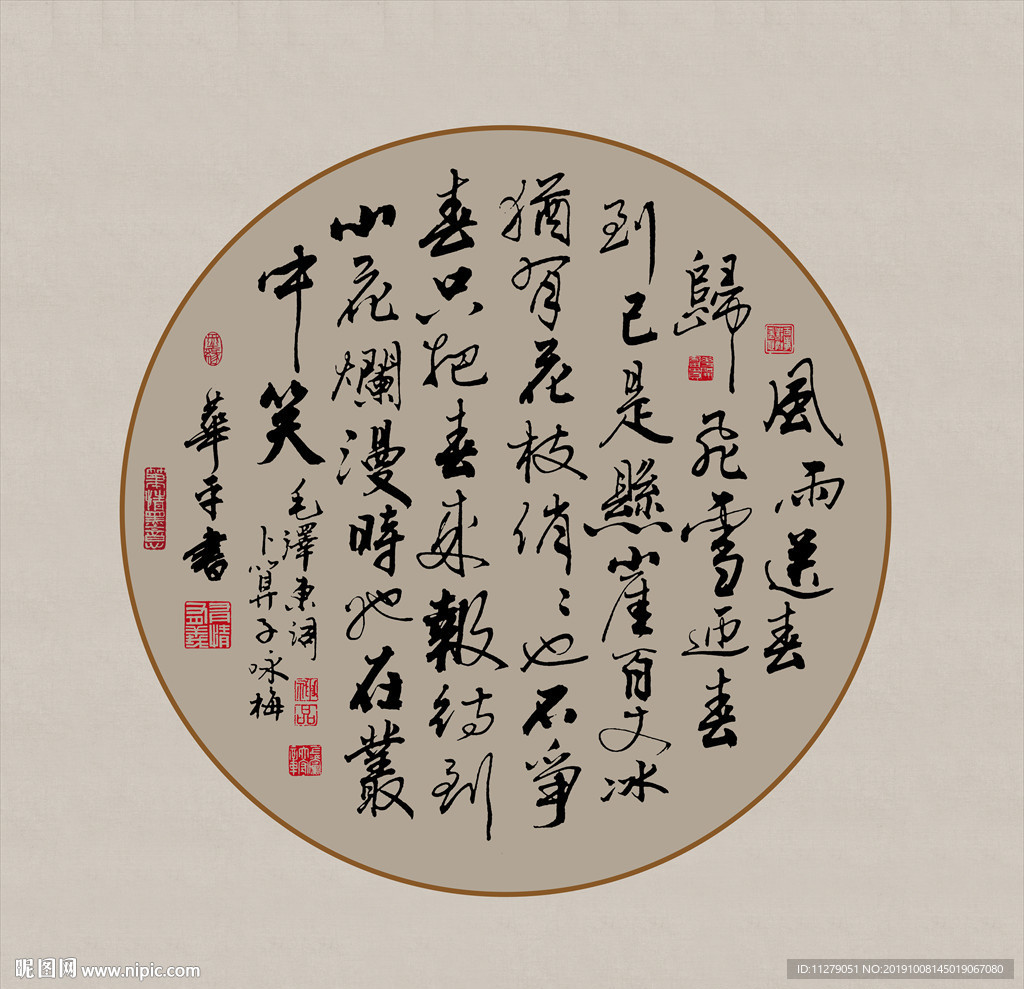 風雨送春
歸飛雪迎春
到已是懸崖百丈冰
猶有花枝俏〻也不爭
春只把春來報待到
山花爛漫時她在叢
中笑
毛澤東詞
卜算子咏梅
華平書
昵图网 www.nipic.com
ID:11279051 NO:20191008145019067080